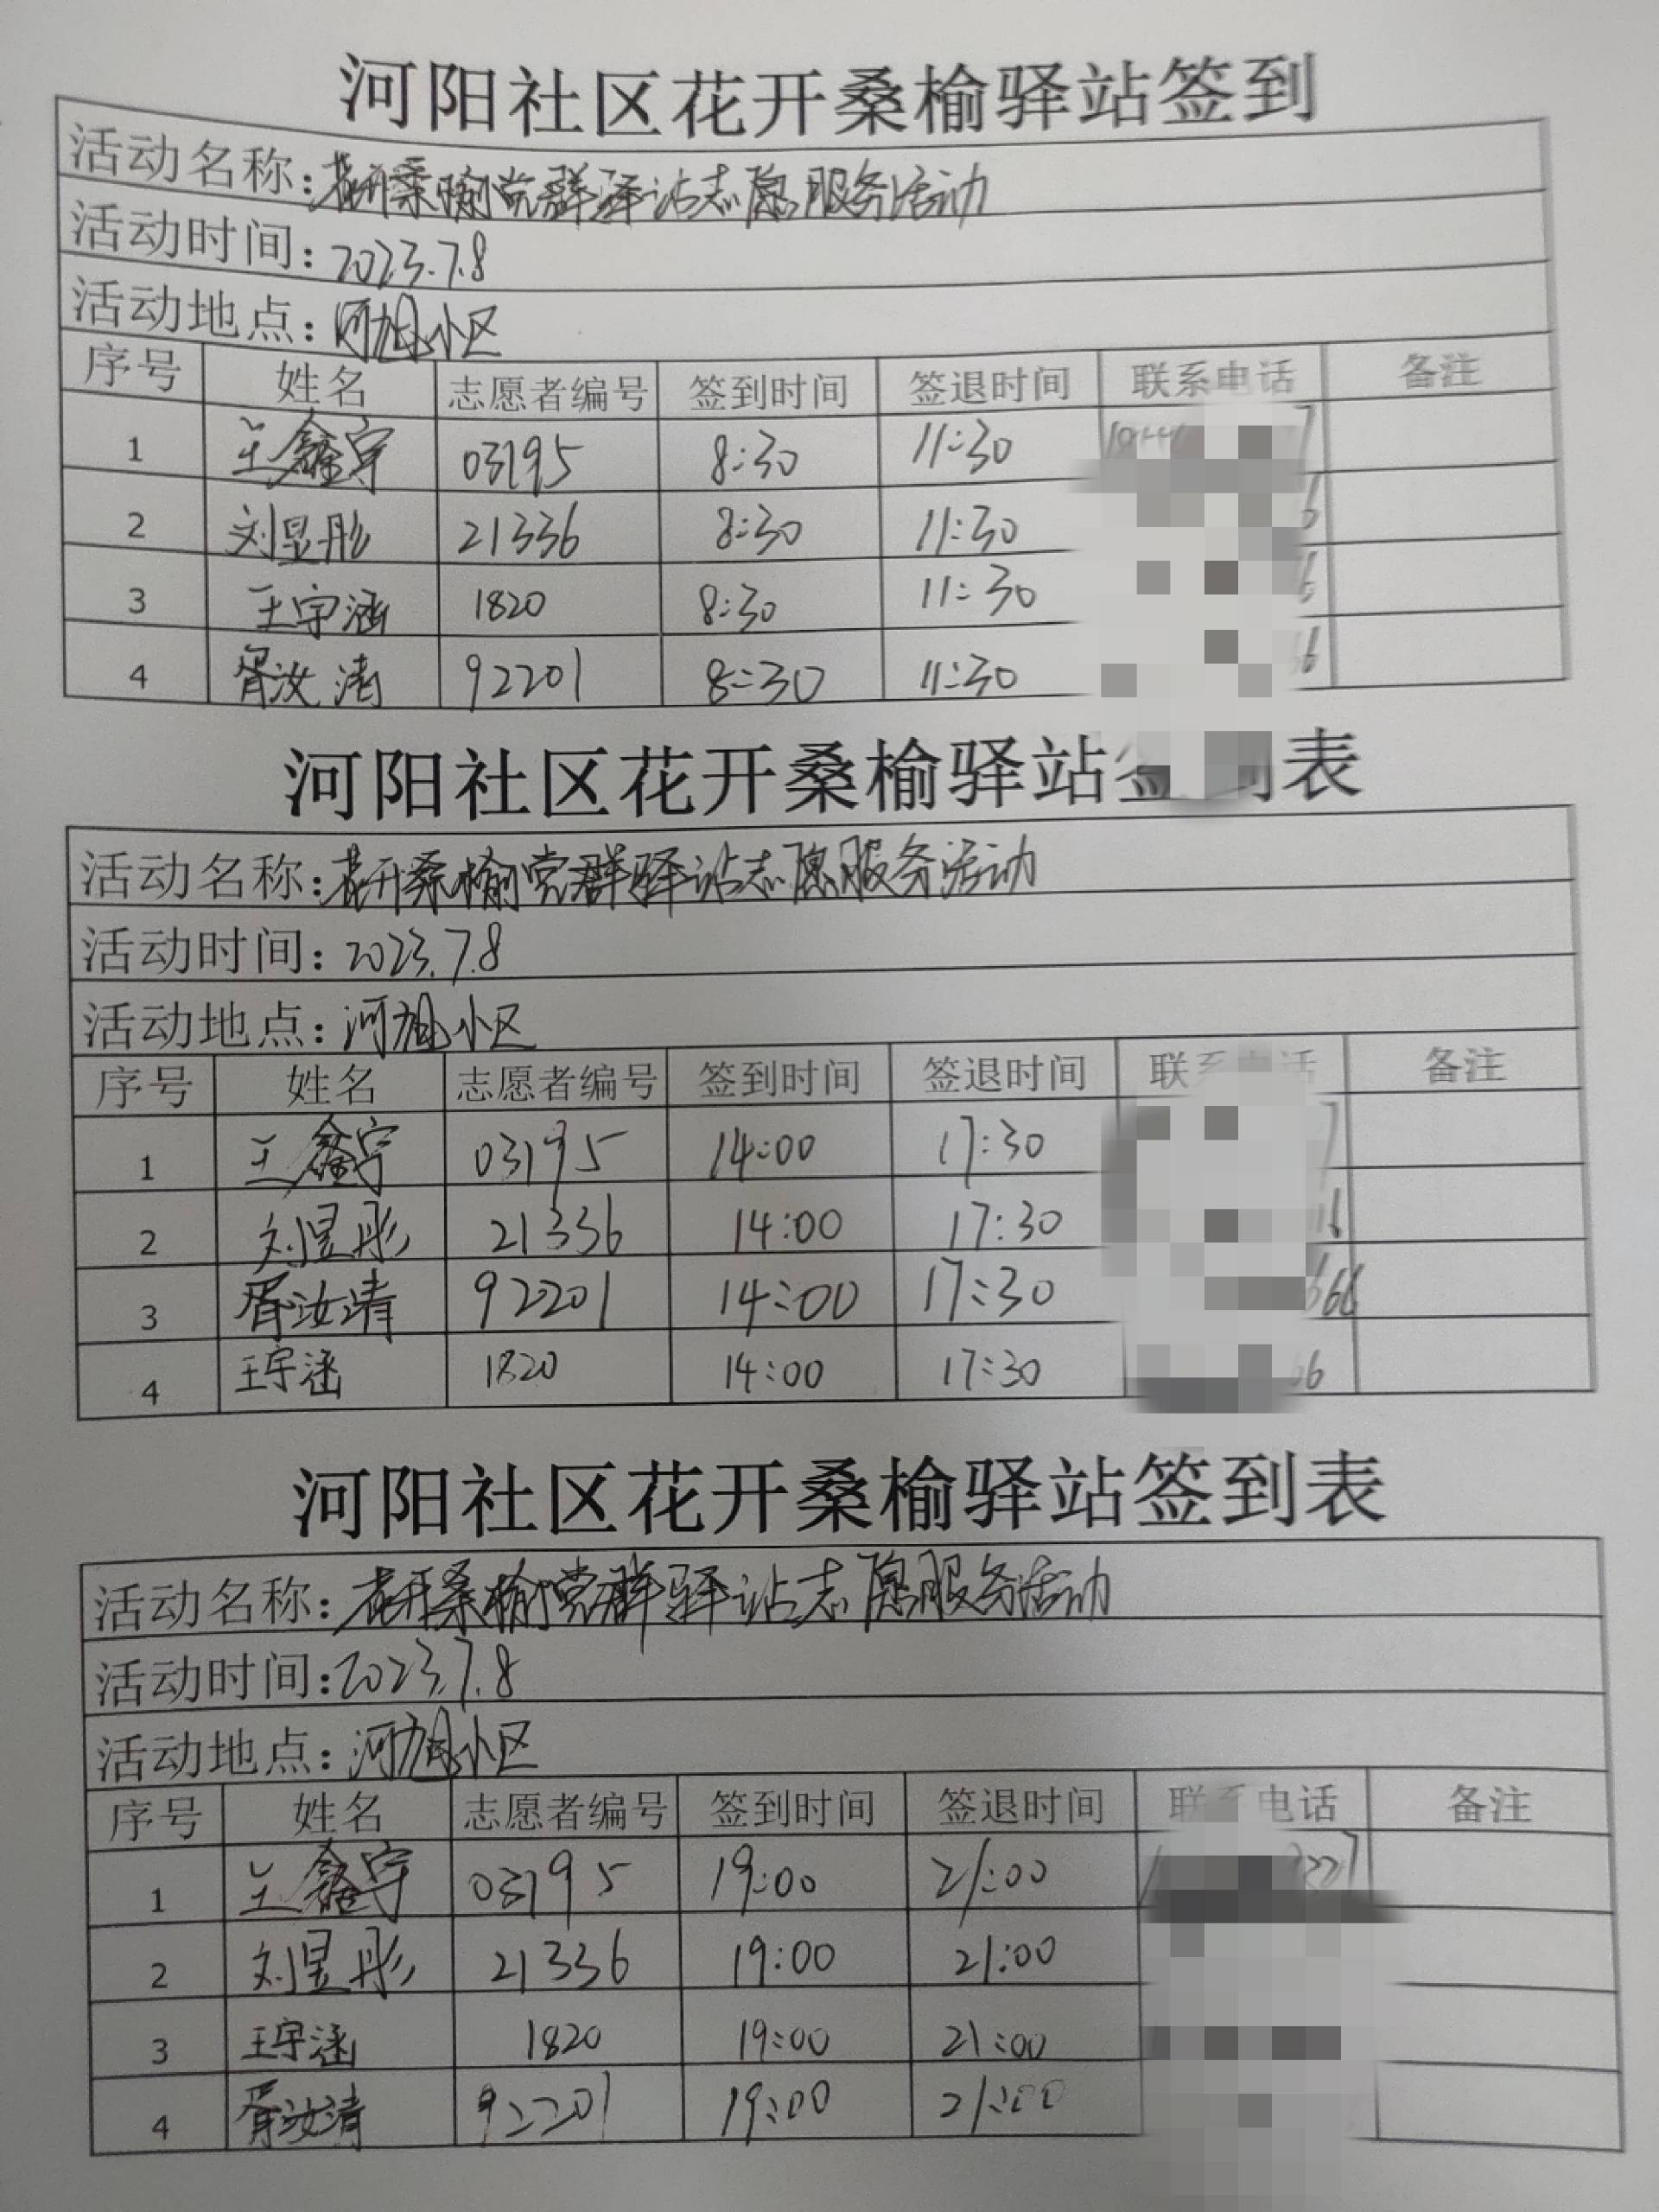 河阳社区花开桑榆驿站签到
活动名称:花开桑榆党群驿站志愿服务活动
活动时间:2023.7.8
活动地点:河旭小区
序号 姓名 志愿者编号 签到时间 签退时间 联系电话 备注
1 王鑫宇 03195 8:30 11:30
2 刘昱彤 21336 8:30 11:30
3 王宇涵 1820 8:30 11:30
4 胥汝清 92201 8:30 11:30
河阳社区花开桑榆驿站签到表
活动名称:花开桑榆党群驿站志愿服务活动
活动时间:2023.7.8
活动地点:河旭小区
序号 姓名 志愿者编号 签到时间 签退时间 联系电话 备注
1 王鑫宇 03195 14:00 17:30
2 刘昱彤 21336 14:00 17:30
3 胥汝清 92201 14:00 17:30
4 王宇涵 1820 14:00 17:30
河阳社区花开桑榆驿站签到表
活动名称:花开桑榆党群驿站志愿服务活动
活动时间:2023.7.8
活动地点:河旭小区
序号 姓名 志愿者编号 签到时间 签退时间 联系电话 备注
1 王鑫宇 03195 19:00 21:00
2 刘昱彤 21336 19:00 21:00
3 王宇涵 1820 19:00 21:00
4 胥汝清 92201 19:00 21:00